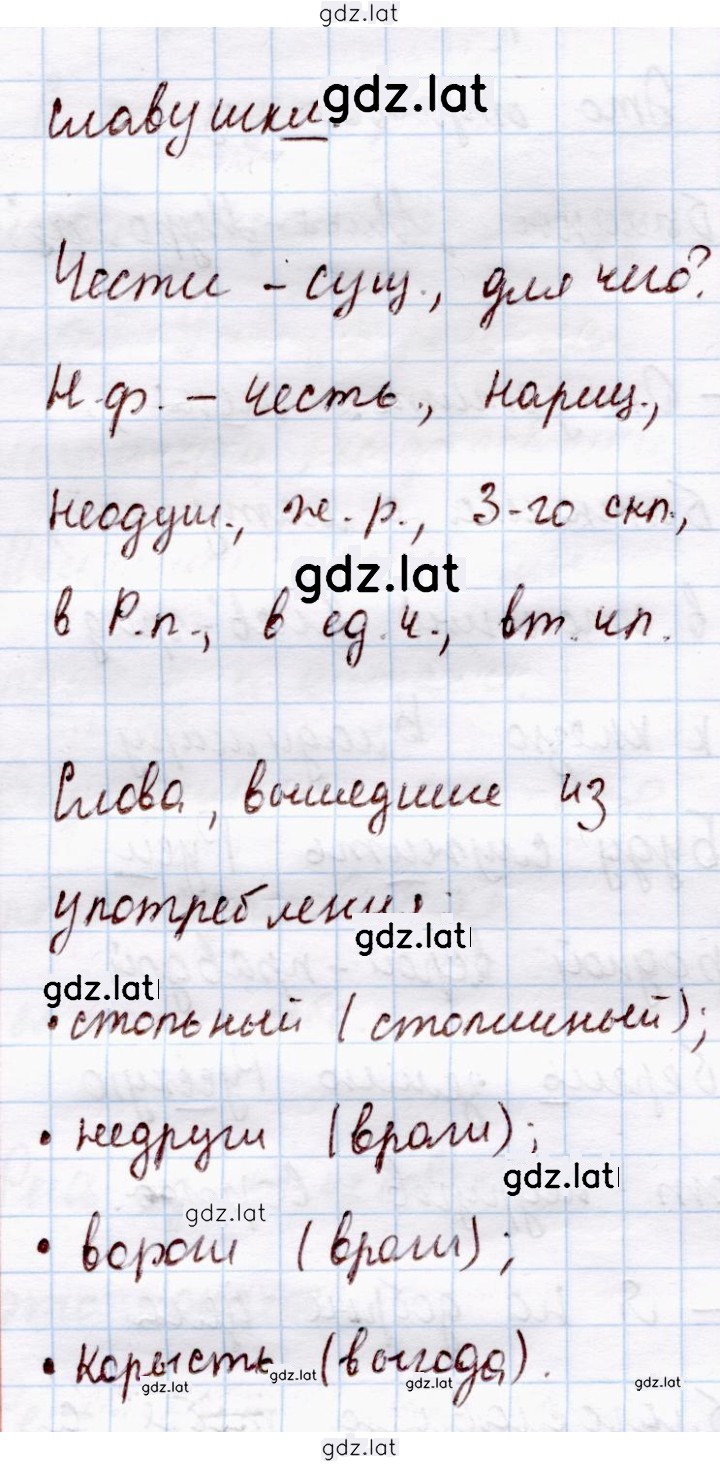 gdz.lat
славушки. gdz.lat
Чести – сущ., для чего?
Н.ф. – честь, нариц.,
неодуш., ж.р., 3-го скл.,
gdz.lat
в Р.п., в ед.ч., вт. чл.
Слова, вышедшие из
употребления:
gdz.lat
gdz.lat
• стольный (столичный);
• недруги (враги);
gdz.lat
gdz.lat
• вороги (враги);
• корысть (выгода).
gdz.lat gdz.lat gdz.lat gdz.lat
gdz.lat